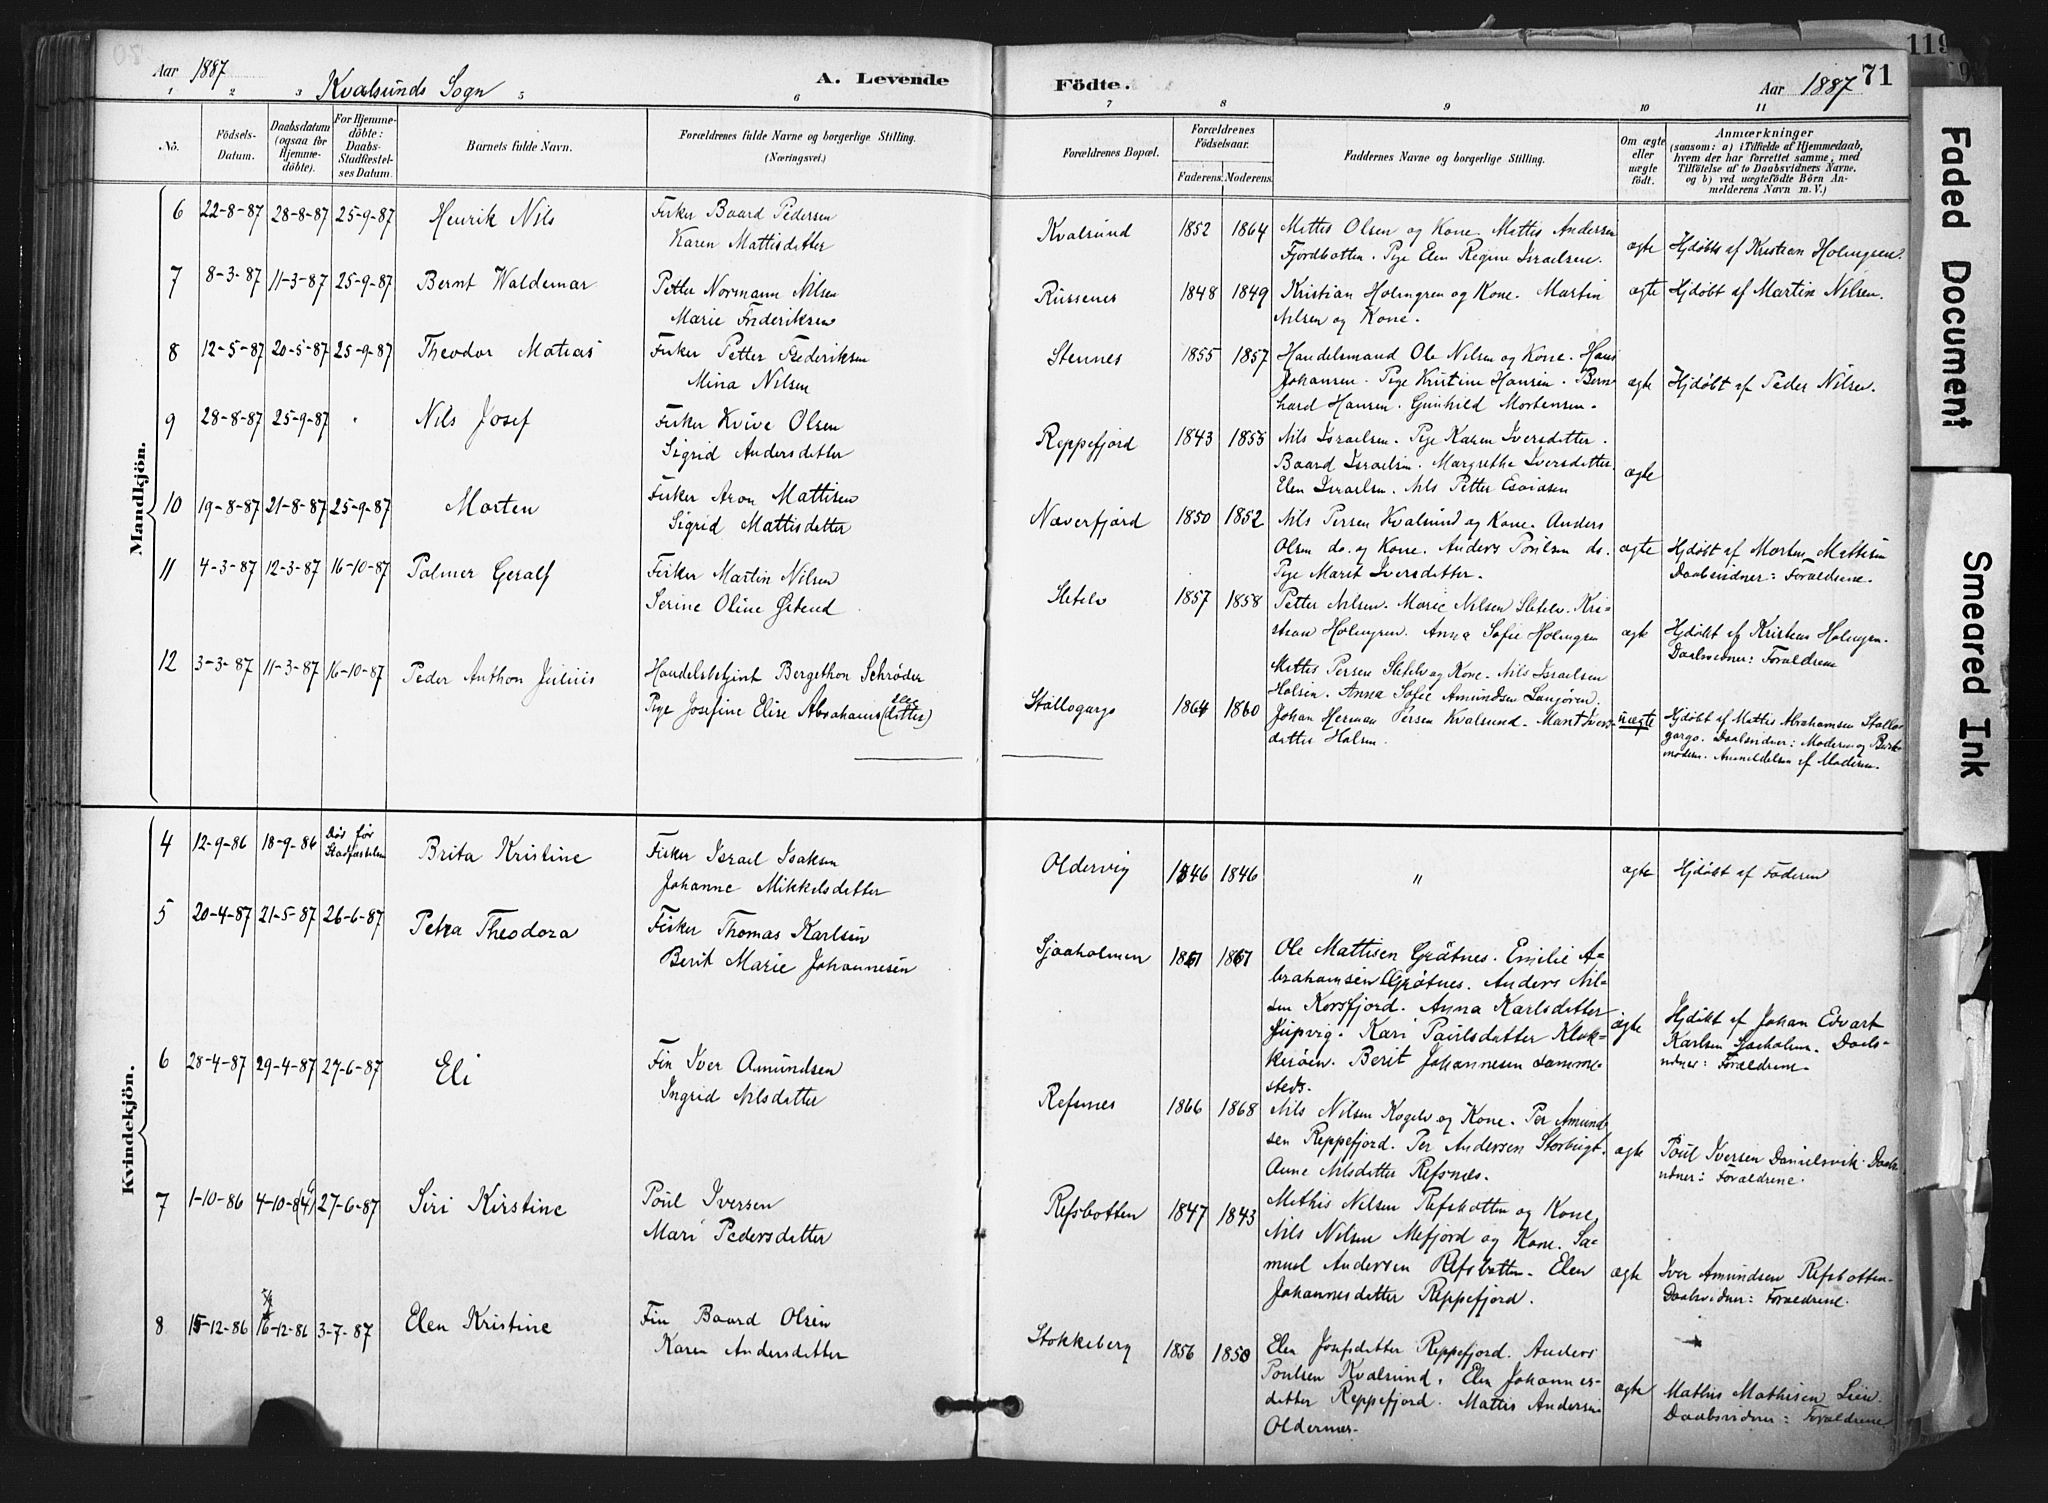 Aar 1887
Kvalsunds Sogn
A. Levende
Födte.
Aar 1887
71
119
1 2 3 5 6 7 8 9 10 11
No.
Födsels-Datum.
Daabsdatum (ogsaa for Hjemmedöbte).
For Hjemmedöbte: Daabs-Stadfæstelses Datum.
Barnets fulde Navn.
Forældrenes fulde Navne og borgerlige Stilling.
(Næringsvei.)
Forældrenes Bopæl.
Forældrenes Födselsaar.
Faderens. Moderens.
Faddernes Navne og borgerlige Stilling.
Om ægte eller uægte födt.
Anmærkninger
(saasom: a) i Tilfælde af Hjemmedaab, hvem der har forrettet samme, med Tilföielse af to Daabsvidners Navne. og b) ved uægtefödte Börn Anmelderens Navn m. V.)
Mandkjön.
6 22-8-87 28-8-87 25-9-87 Henrik Nils
Fisker Baard Pedersen
Karen Mattisdatter
Kvalsund 1852 1864
Mattis Olsen og Kone. Mattis Andersen
Fjordbotten. Pige Elen Regine Israelsen.
ægte
Hjdøbt af Kristian Holmgren.
7 8-3-87 11-3-87 25-9-87 Bernt Waldemar
Petter Normann Nilsen
Marie Frederiksen
Russenes 1848 1849
Kristian Holmgren og Kone. Martin
Nilsen og Kone.
ægte
Hjdøbt af Martin Nilsen.
8 12-5-87 20-5-87 25-9-87 Theodor Matias
Fisker Petter Frederiksen
Mina Nilsen
Stennes 1855 1857
Handelsmand Ole Nilsen og Kone. Hans
Johansen. Pige Kristine Hansen. Bern
hard Hansen. Gunhild Mortensen.
ægte
Hjdøbt af Peder Nilsen.
9 28-8-87 25-9-87 Nils Josef
Fisker Kvive Olsen
Sigrid Andersdatter
Reppefjord 1843 1855
Nils Israelsen. Pige Karen Iversdatter.
Baard Israelsen. Margrethe Iversdatter.
Elen Israelsen. Nils Petter Esaiasen
ægte
10 19-8-87 21-8-87 25-9-87 Morten
Fisker Aron Mattisen
Sigrid Mattisdatter
Næverfjord 1850 1852
Nils Persen Kvalsund og Kone. Anders
Olsen do. og Kone. Anders Poulsen do.
Pige Marit Iversdatter.
ægte
Hjdøbt af Morten Mattisen
Daabsvidner: Foraldrene.
11 4-3-87 12-3-87 16-10-87 Palmer Geralf
Fisker Martin Nilsen
Serine Oline
Sletelv 1857 1858
Petter Nilsen. Marie Nilsen Sletelv. Kri-
stian Holmgren. Anna Sofie Holmgren
ægte
Hjdøbt af Kristian Holmgren.
Daabsvidner: Foraldrene
12 3-3-87 11-3-87 16-10-87 Peder Anthon Julius
Handelsbetjent Bergethon Schrøder
Pige Josefine Elise Abrahams(datter)
Stallogargo 1864 1860
Mattis Persen Sletelv og Kone. Nils Israelsen
Halsen. Anna Sofie Amundsen
Johan Herman Persen Kvalsund. Marit Ivers-
datter Halsen.
uægte
Hjdøbt af Mattis Abrahamsen Stallo-
gargo. Daabsvidner: Moderen og
moderen. Anmeldelsen af Moderen.
Kvindekjön.
4 12-9-86 18-9-86 Død før
Stadfæstelsen
Brita Kristine
Fisker Israel Isaksen
Johanne Mikkelsdatter
Oldervig 1846 1846
"
ægte
Hjdøbt af Faderen
5 20-4-87 21-5-87 26-6-87 Petra Theodora
Fisker Thomas Karlsen
Berit Marie Johannesen
Sjaaholmen 1861 1861
Ole Mattisen Grøtnes. Emilie A-
brahamsen Grøtnes. Anders Nil-
sen Korsfjord. Anna Karlsdatter
Kari Poulsdatter Klok-
kerøien. Berit Johannesen samme-
steds.
ægte
Hjdøbt af Johan Edvart
Karlsen Daabs-
vidner: Foraldrene.
6 28-4-87 29-4-87 27-6-87 Eli
Fin Iver Amundsen
Ingrid Nilsdatter
Refsnes 1866 1868
Nils Nilsen Kogelv og Kone. Per Amund-
sen Reppefjord. Per Andersen Storbugt.
Anne Nilsdatter Refsnes.
ægte
Poul Iversen Danielsvik. Daab-
vidner: Foraldrene.
7 1-10-86 4-10-86 27-6-87 Siri Kirstine
Poul Iversen
Mari Pedersdatter
Refsbotten 1847 1843
Mathis Nilsen Refsbotten og Kone.
Nils Nilsen Mefjord og Kone. Sa-
muel Andersen Refsbotten. Elen
Johannesdatter Reppefjord.
ægte
Iver Amundsen Refsbotten.
Daabsvidner: Foraldrene.
8 15-12-86 16-12-86 3-7-87 Elen Kristine
Fin Baard Olsen
Karen Andersdatter
Stokkeberg 1856 1850
Elen Josefsdatter Reppefjord. Anders
Poulsen Kvalsund. Elen Johannes-
datter Reppefjord. Mattis Andersen
Oldernes.
ægte
Mathis Mathisen
Daabsvidner: Foraldrene
Faded Document
Smeared Ink